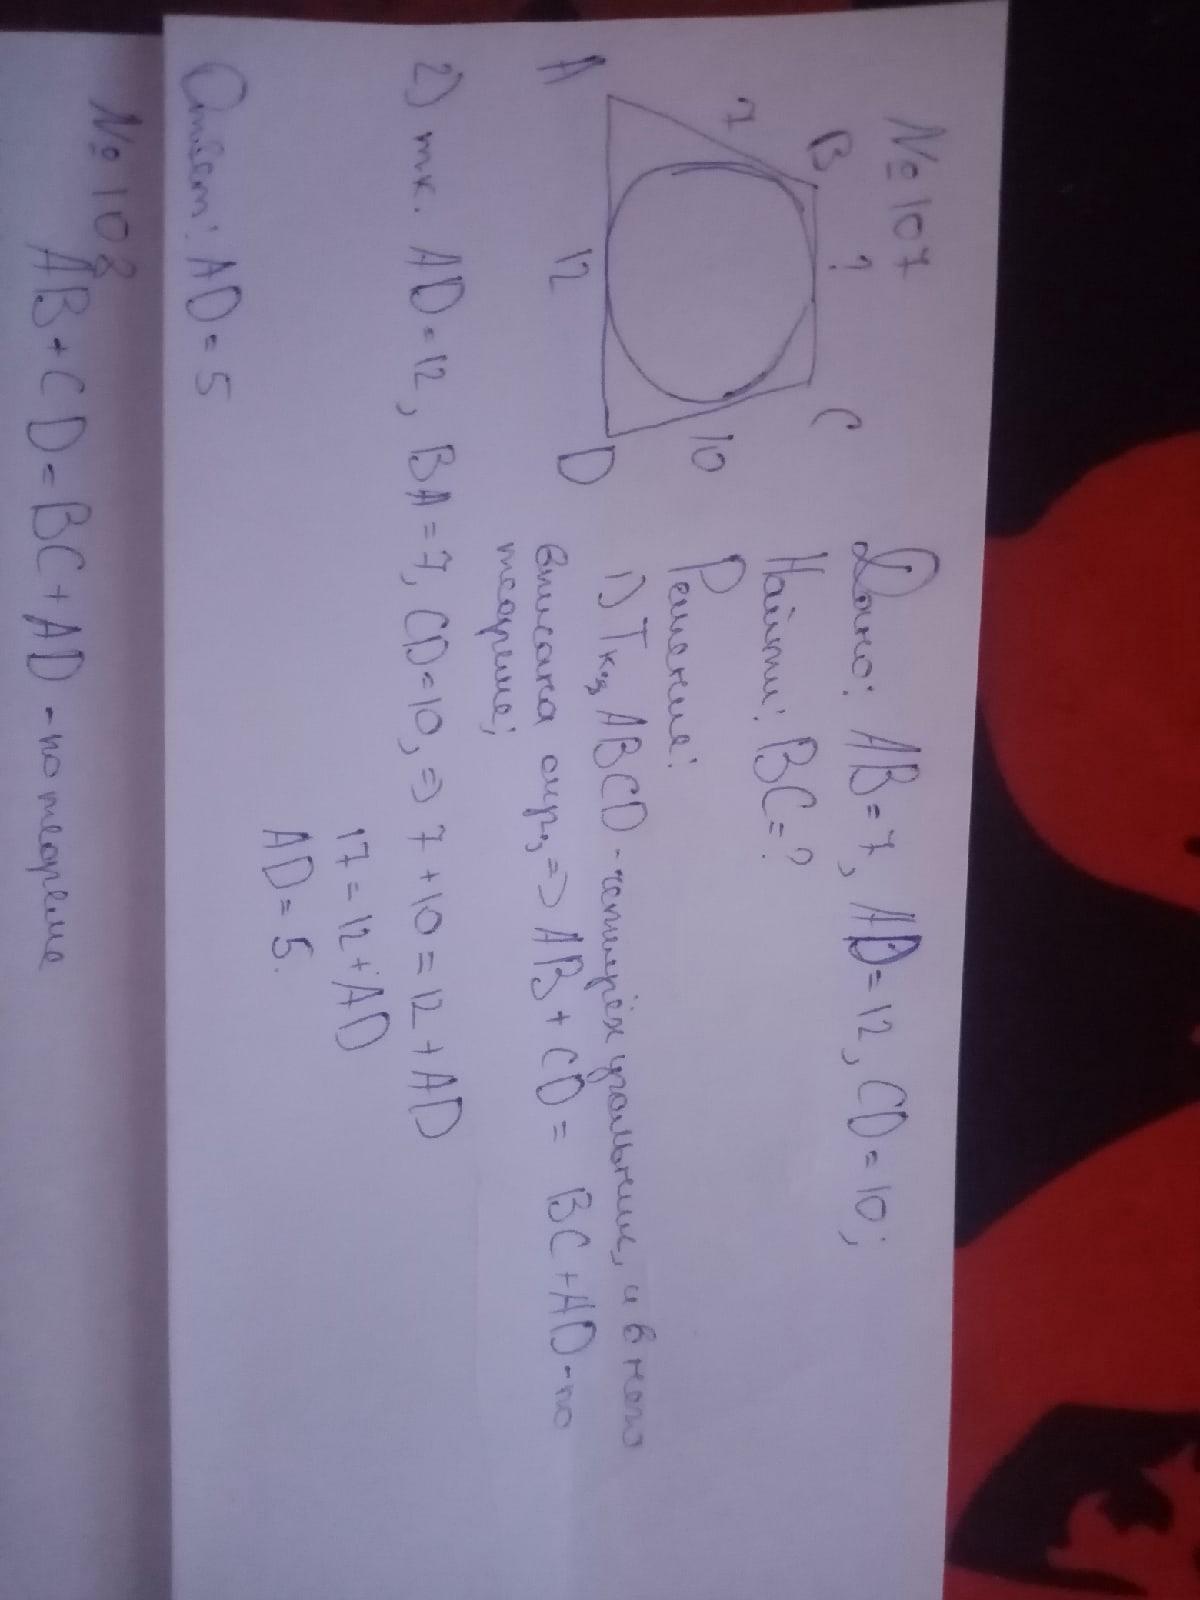 № 107
B ? C
7
10
A 12 D
Дано: AB=7, AD=12, CD=10;
Найти: BC=?
Решение:
1) Т.к., ABCD - четырёхугольник, и в него
вписана окр., => AB + CD = BC + AD - по
теореме;
2) т.к. AD=12, BA=7, CD=10, => 7+10=12+AD
17=12+AD
AD=5.
Ответ: AD=5
№ 108
AB+CD=BC+AD - по теореме